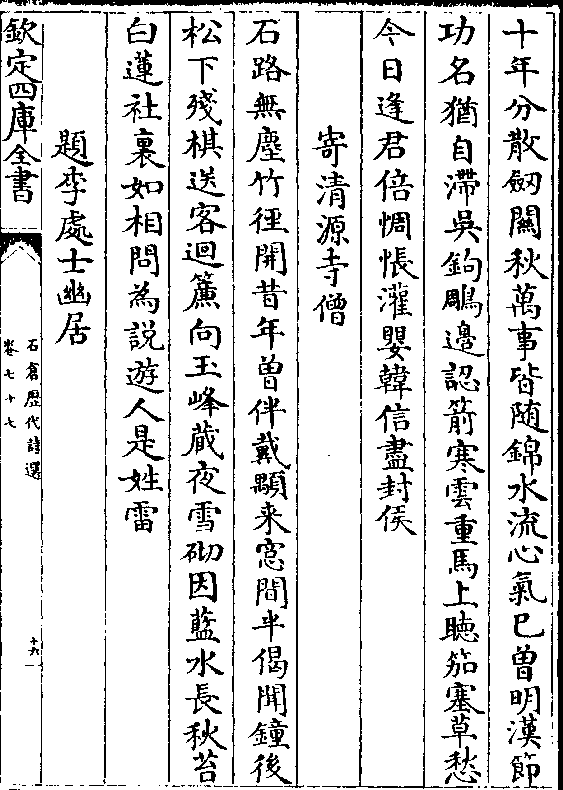 十年分散劒關秋萬事皆随錦水流心氣已曾明漢節
功名猶自滯吳鉤鵰邊認箭寒雲重馬上聴笳塞草愁
今日逢君倍惆悵灌嬰韓信盡封侯
寄清源寺僧
石路無塵竹徑開昔年曾伴戴顒来窓間半偈聞鐘後
松下殘棋送客迴簾向玉峰蔵夜雪砌因藍水長秋苔
白蓮社裏如相問為説遊人是姓雷
題李處士幽居
欽定四庫全書
石倉歷代詩選
卷七十七
十六